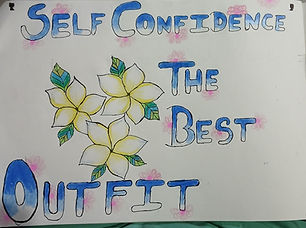 SELF CONFIDENCE
THE
BEST
OUTFIT